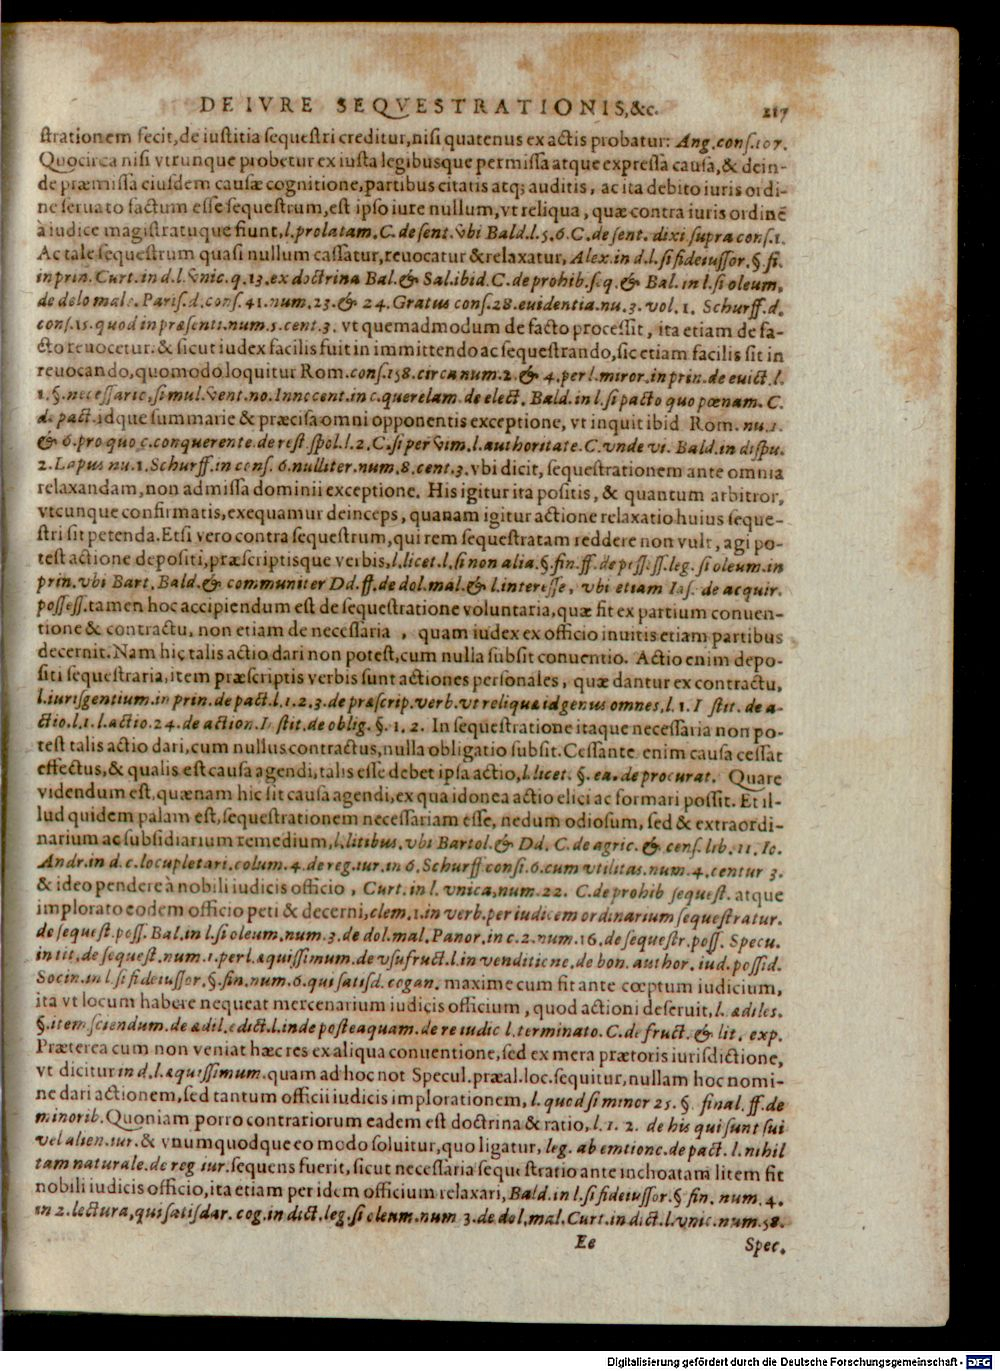 DE IVRE SEQVESTRATIONIS,&c. 217
strationem fecit,de iustitia sequestri creditur,nisi quatenus ex actis probatur: Ang.cons.107.
Quocirca nisi vtrunque probetur ex iusta legibusque permissa atque expressa causa,& dein-
de præmissa eiusdem causæ cognitione,partibus citatis atq; auditis, ac ita debito iuris ordi-
ne seruato factum esse sequestrum,est ipso iure nullum,vt reliqua, quæ contra iuris ordinē
à iudice magistratuque fiunt,l.prolatam.C.de sent.vbi Bald.l.5.6.C.de sent. dixi supra cons.1.
Ac tale sequestrum quasi nullum cassatur,reuocatur & relaxatur, Alex.in d.l.si fideiussor.§.fi.
in prin. Curt.in d.l.vnic.q.13.ex doctrina Bal.& Sal.ibid.C.de prohib.seq.& Bal.in l.si oleum,
de dolo male. Paris.d.cons.41.num.23.& 24.Gratus cons.28.euidentia.nu.3.vol.1. Schurff.d.
cons.15.quod in præsenti.num.5.cent.3. vt quemadmodum de facto processit, ita etiam de fa-
cto reuocetur.& sicut iudex facilis fuit in immittendo ac sequestrando,sic etiam facilis sit in
reuocando,quomodo loquitur Rom.cons.158.circa num.2.& 4.per l.miror.in prin.de euict.l.
1.§.necessario,si mul.vent.no.Innocent.in c.querelam.de elect. Bald.in l.si pacto quo pœnam.C.
de pact.idque summarie & præcisa omni opponentis exceptione, vt inquit ibid Rom. nu.1.
& 6.pro quo c.conquerente.de rest.spol.l.2.C.si per vim.l.authoritate.C.vnde vi. Bald.in dispu.
2.Lapus nu.1.Schurff.in cons. 6.nulliter.num.8.cent.3.vbi dicit, sequestrationem ante omnia
relaxandam,non admissa dominii exceptione. His igitur ita positis, & quantum arbitror,
vtcunque confirmatis,exequamur deinceps, quanam igitur actione relaxatio huius seque-
stri sit petenda.Etsi vero contra sequestrum,qui rem sequestratam reddere non vult, agi po-
test actione depositi,præscriptisque verbis,l.licet.l.si non alia.§.fin.ff.de possess.leg.si oleum.in
prin.vbi Bart.Bald.& communiter Dd.ff.de dol.mal.& l.interesse, vbi etiam Ias. de acquir.
possess.tamen hoc accipiendum est de sequestratione voluntaria,quæ fit ex partium conuen-
tione & contractu, non etiam de necessaria , quam iudex ex officio inuitis etiam partibus
decernit.Nam hic talis actio dari non potest,cum nulla subsit conuentio. Actio enim depo-
siti sequestraria,item præscriptis verbis sunt actiones personales, quæ dantur ex contractu,
l.iurisgentium.in prin.de pact.l.1.2.3.de præscrip.verb.vt reliqua id genus omnes,l.1.I stit.de a-
ctio.l.1.l.actio.24.de action.I stit.de oblig.§.1.2. In sequestratione itaque necessaria non po-
test talis actio dari,cum nullus contractus,nulla obligatio subsit.Cessante enim causa cessat
effectus,& qualis est causa agendi,talis esse debet ipsa actio,l.licet.§.ea.de procurat. Quare
videndum est,quænam hic sit causa agendi,ex qua idonea actio elici ac formari possit. Et il-
lud quidem palam est,sequestrationem necessariam esse, nedum odiosum, sed & extraordi-
narium ac subsidiarium remedium,l.litibus.vbi Bartol.& Dd. C.de agric. & cens.lib.11.Io.
Andr.in d.c.locupletari.colum.4.de reg.iur.in 6.Schurff consi.6.cum vtilitas.num.4.centur 3.
& ideo pendere à nobili iudicis officio, Curt.in l.vnica,num.22. C.de prohib sequest. atque
implorato eodem officio peti & decerni,clem.1.in verb.per iudicem ordinarium sequestratur.
de sequest.poss. Bal.in l.si oleum.num.3.de dol.mal.Panor.in c.2.num.16.de sequestr.poss. Specu.
in tit.de sequest.num.1.per l.æquissimum.de vsufruct.l.in venditione.de bon.author.iud.possid.
Socin.in l.si fideiussor.§.fin.num.6.qui satisd.cogan. maxime cum fit ante cœptum iudicium,
ita vt locum habere nequeat mercenarium iudicis officium, quod actioni deseruit,l.ædiles.
§.item sciendum.de ædil.edict.l.inde posteaquam.de re iudic l.terminato.C.de fruct.& lit. exp.
Præterea cum non veniat hæc res ex aliqua conuentione,sed ex mera prætoris iurisdictione,
vt dicitur in d.l.æquissimum.quam ad hoc not Specul.præal.loc.sequitur,nullam hoc nomi-
ne dari actionem,sed tantum officii iudicis implorationem, l.quod si minor 25.§. final.ff.de
minorib.Quoniam porro contrariorum eadem est doctrina & ratio,l.1.2. de his qui sunt sui
vel alien.iur.& vnumquodque eo modo soluitur,quo ligatur, leg. ab emtione.de pact. l.nihil
tam naturale.de reg iur.sequens fuerit,sicut necessaria seque stratio ante inchoatam litem fit
nobili iudicis officio,ita etiam per idem officium relaxari, Bald.in l.si fideiussor.§ fin. num.4.
in 2.lectura,qui satisdar. cog.in dict.leg.si oleum.num 3.de dol.mal.Curt.in dict.l.vnic.num.58.
Ee Spec.
Digitalisierung gefördert durch die Deutsche Forschungsgemeinschaft - DFG